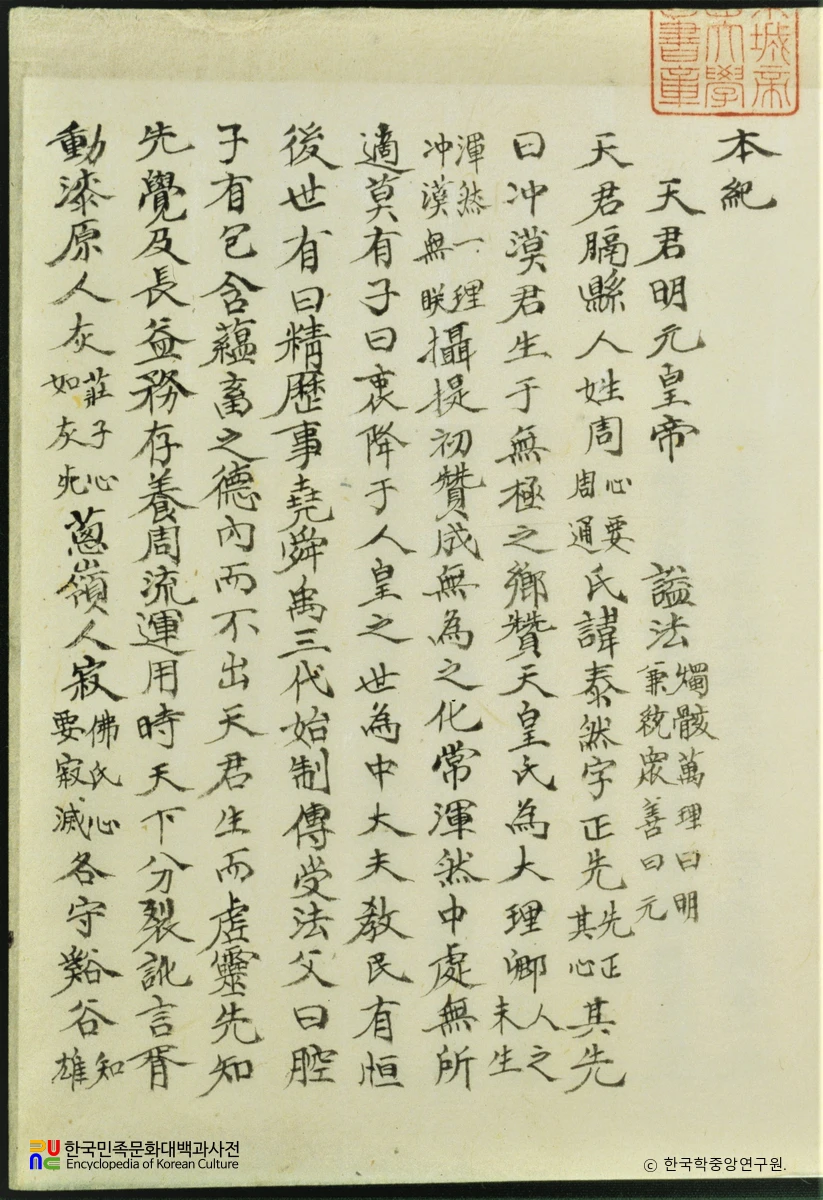 本紀
天君明元皇帝 謚法燭骸萬理曰明兼統衆善曰元
天君膈縣人姓周心要周通氏諱泰然字正先先正其心其先
曰冲漠君生于無極之鄉贊天皇氏為大理卿人之未生
渾然一理冲漠無眹攝提初贊成無為之化常渾然中處無所
適莫有子曰衷降于人皇之世為中大夫教民有恒
後世有曰精歷事堯舜禹三代始制傳受法父曰腔
子有包含蘊畜之德內而不出天君生而虛靈先知
先覺及長益務存養周流運用時天下分裂訛言胥
動漆原人灰莊子心如灰死蔥嶺人寂佛氏心要寂滅各守谿谷知雄
城帝
大學
書章
한국민족문화대백과사전
Encyclopedia of Korean Culture
© 한국학중앙연구원.